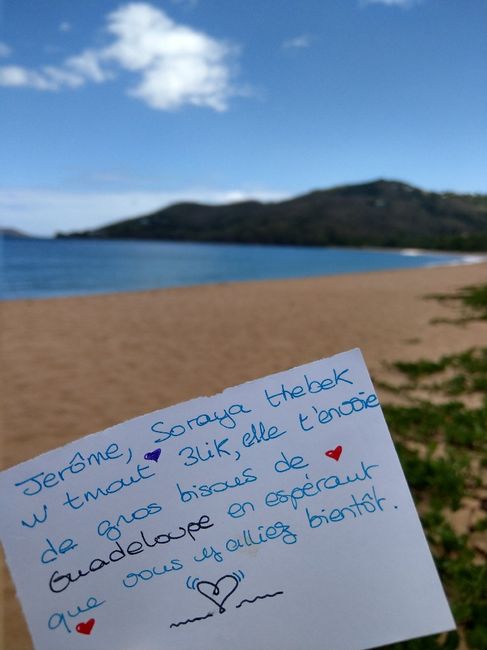 Jerôme, Soraya thebek
w tmout 3lik, elle t'envoie
de gros bisous de
Guadeloupe en espérant
que vous y alliez bientôt.